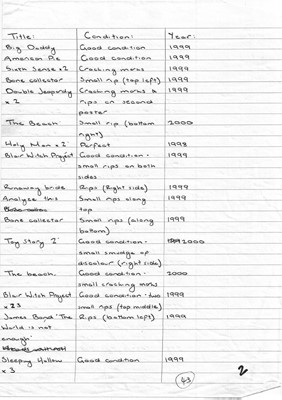 Title: Condition: Year:
Big Daddy Good condition 1999
American Pie Good condition 1999
Sixth Sense x2 Creasing marks 1999
Bone collector Small rip (top left) 1999
Double Jeopardy Creasing marks & 1999
x 2 rips on second
poster
'The Beach' Small rip (bottom 2000
right)
Holy Man x2 Perfect 1998
Blair Witch Project Good condition - 1999
small rips on both
sides
Runaway bride Rips (Right side) 1999
Analyse this Small rips along 1999
top
Bone collector Small rips (along 1999
bottom)
Toy Story 2 Good condition - 2000
small smudge of
discolour (right side)
The beach. Good condition - 2000
small creasing marks
Blair Witch Project Good condition - two 1999
x 23 small rips (top middle)
James Bond 'The Rips (bottom left) 1999
World is not
enough'
Sleeping Hollow Good condition 1999
x 3
43
2